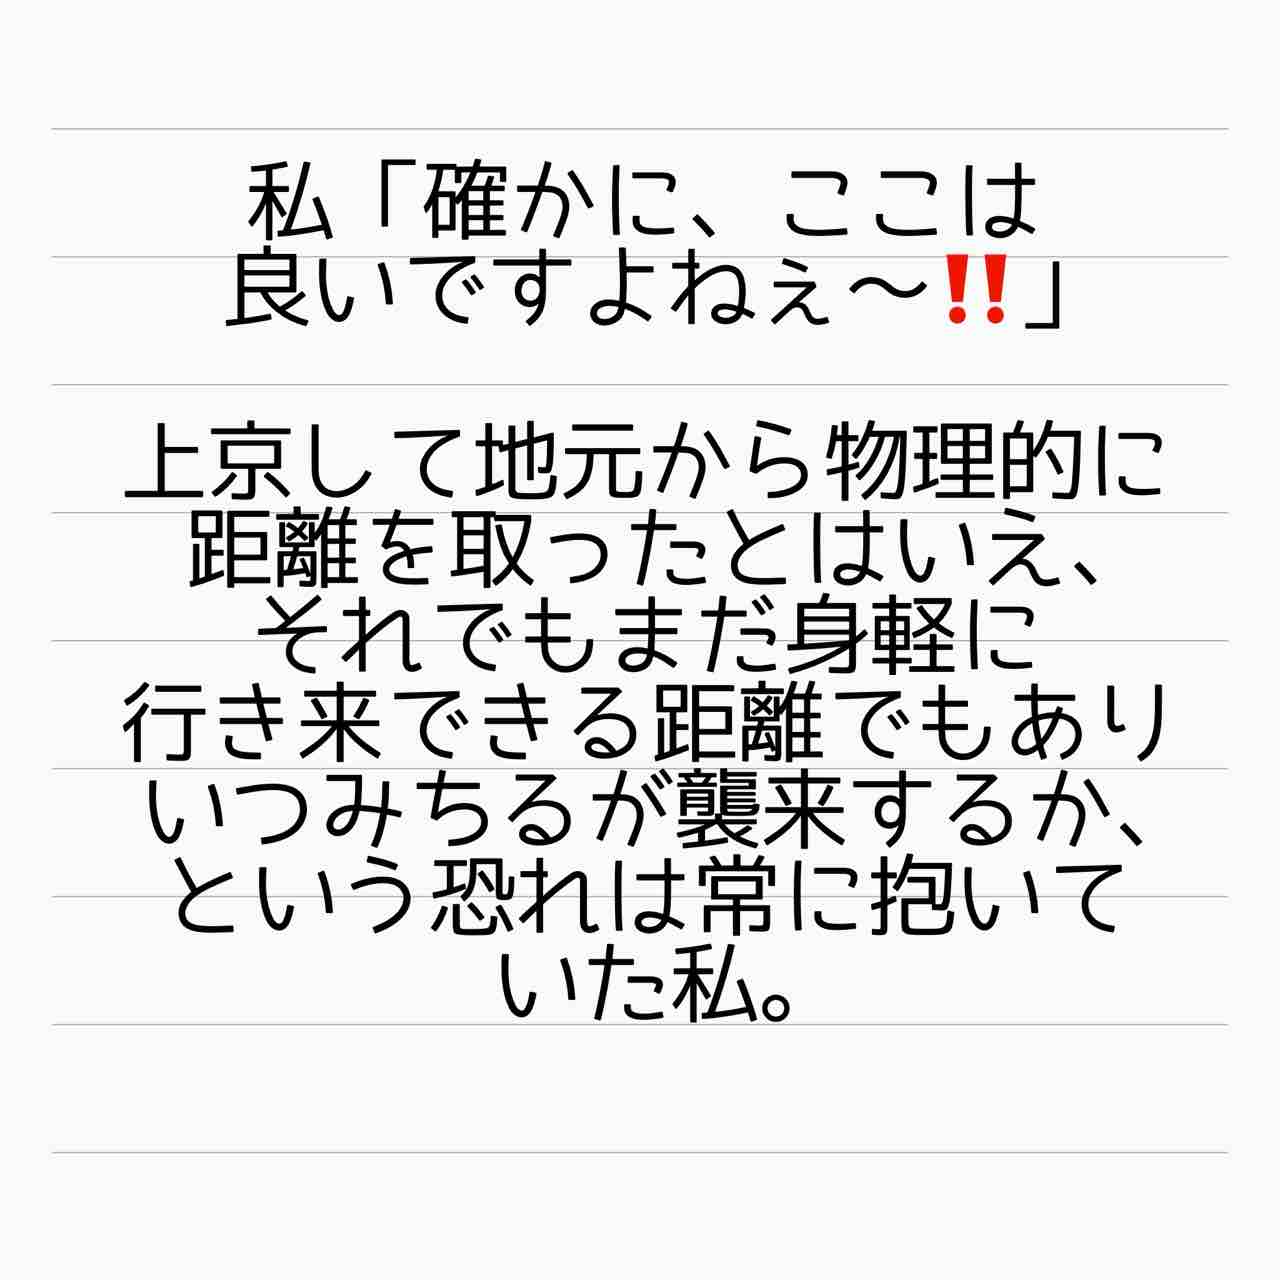 私「確かに、ここは
良いですよねぇ〜‼️」
上京して地元から物理的に
距離を取ったとはいえ、
それでもまだ身軽に
行き来できる距離でもあり
いつみちるが襲来するか、
という恐れは常に抱いて
いた私。